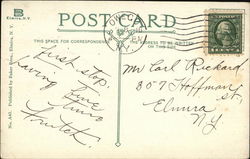 ELMIRA, N.Y.
POST CARD
THIS SPACE FOR CORRESPONDENCE
THE ADDRESS TO BE WRITTEN
ON THIS SIDE
No. A42. Published by Baker Bros., Elmira, N. Y.
first stop.
having fine
time
Mr Carl Rickard
357 Hoffman St
Elmira
N.Y.